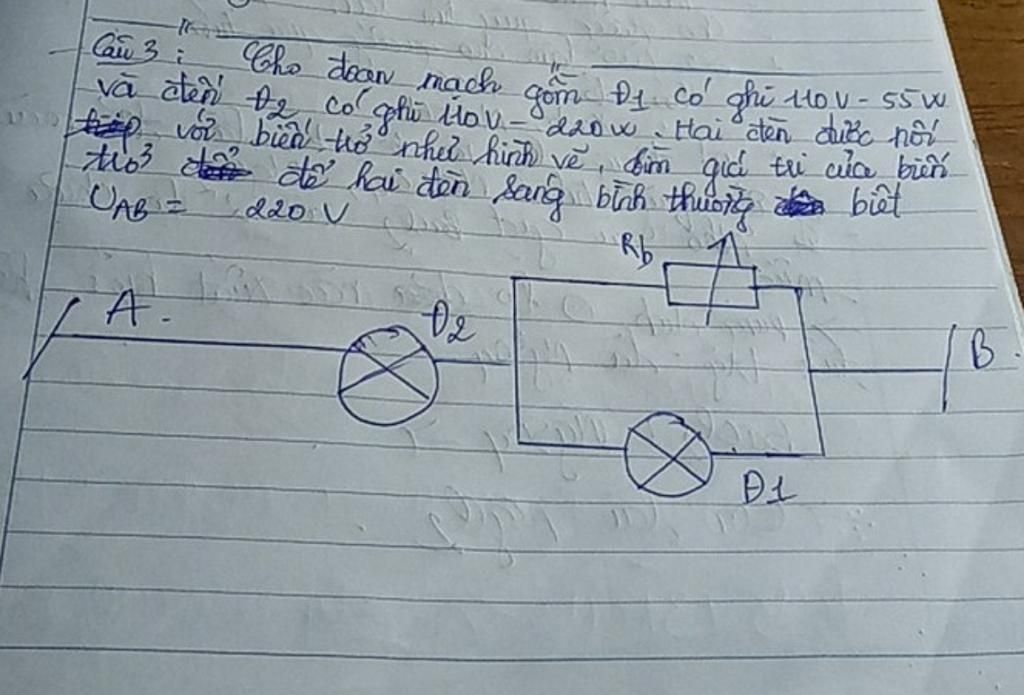 Câu 3: Cho đoạn mạch gồm Đ1 có ghi 110V - 55W
và đèn Đ2 có ghi 110V - 220W. Hai đèn được nối
với biến trở như hình vẽ, tìm giá trị của biến
trở để hai đèn sáng bình thường biết
UAB = 220V
Rb
A.
Đ2
B.
Đ1